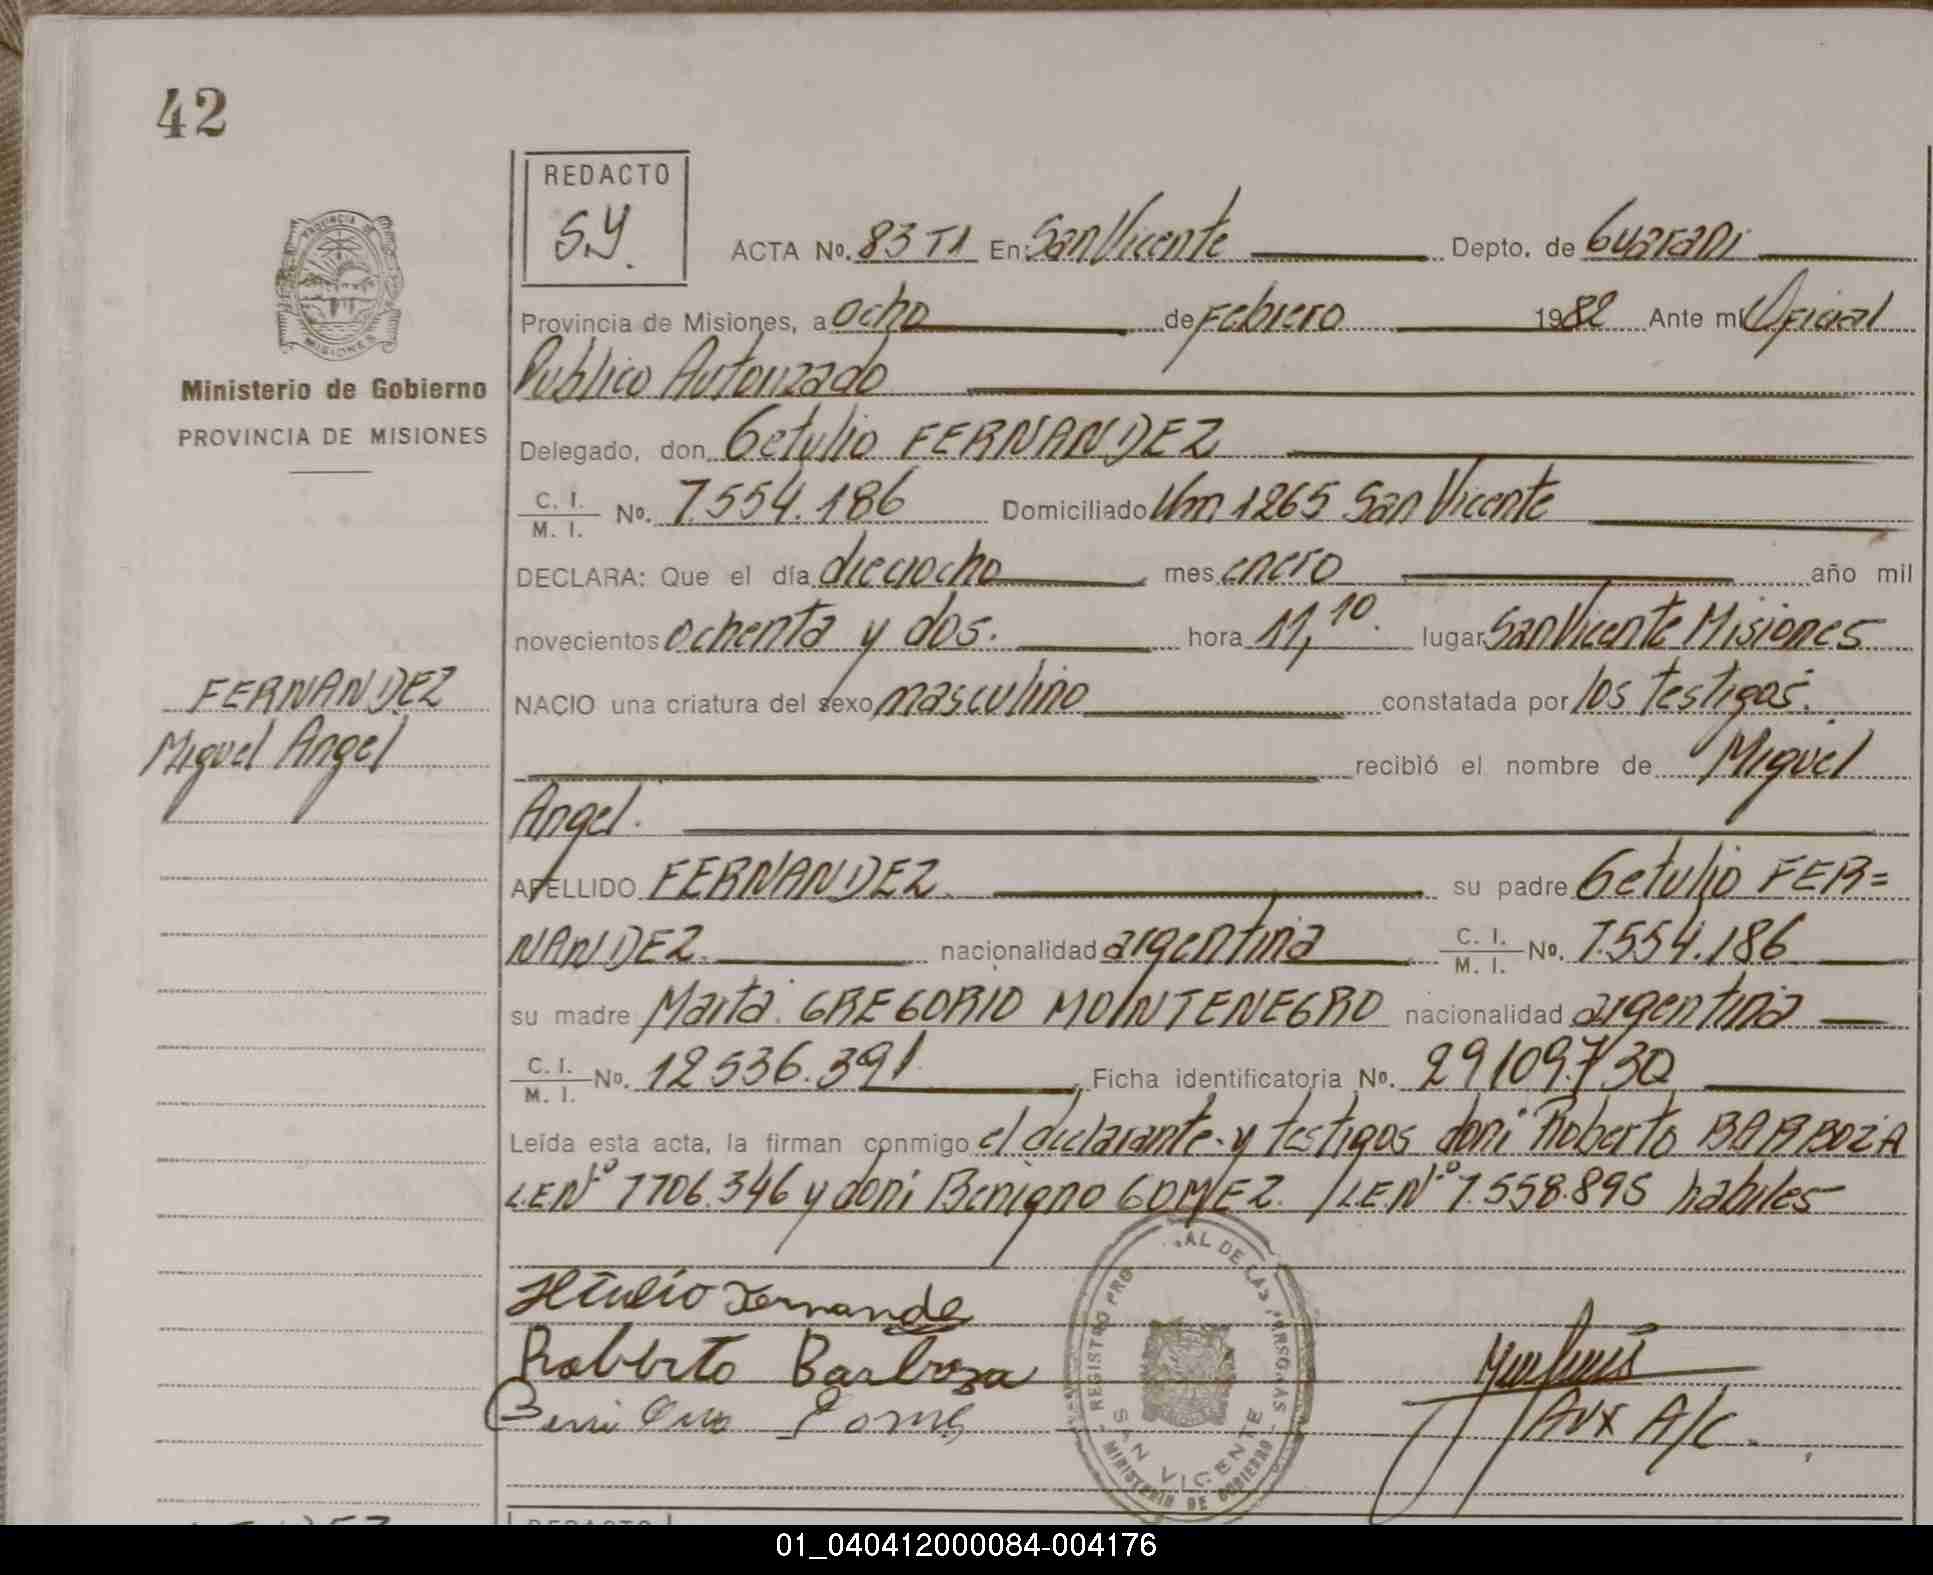 42
REDACTO
S.Y.
ACTA No. 83 T1 En: San Vicente Depto. de Guarani
Provincia de Misiones, a ocho de Febrero 1982 Ante mi Oficial
Publico Autorizado
PROVINCIA DE
MISIONES
Ministerio de Gobierno
PROVINCIA DE MISIONES
Delegado, don Getulio FERNANDEZ
C. I.
M. I. No. 7.554.186 Domiciliado Km 1265 San Vicente
DECLARA: Que el día dieciocho mes enero año mil
novecientos ochenta y dos. hora 11,10. lugar San Vicente Misiones
FERNANDEZ
Miguel Angel
NACIO una criatura del sexo masculino constatada por los testigos.
recibió el nombre de Miguel
Angel.
APELLIDO FERNANDEZ su padre Getulio FER=
NANDEZ. nacionalidad argentina C. I. M. I. No. 7.554.186
su madre Marta GREGORIO MONTENEGRO nacionalidad argentina
C. I.
M. I. No. 12536.391 Ficha identificatoria No. 29109730
Leída esta acta, la firman conmigo el declarante y testigos don: Roberto BARBOZA
L.E.Nº 7706.346 y don: Benigno GOMEZ. L.E.Nº 7.558.895 habiles
Roberto Barboza
AUX A/C.
REGISTRO PRO AL DE LAS PERSONAS
SAN VICENTE
MINISTERIO DE GOBIERNO
REDACTO
01_040412000084-004176